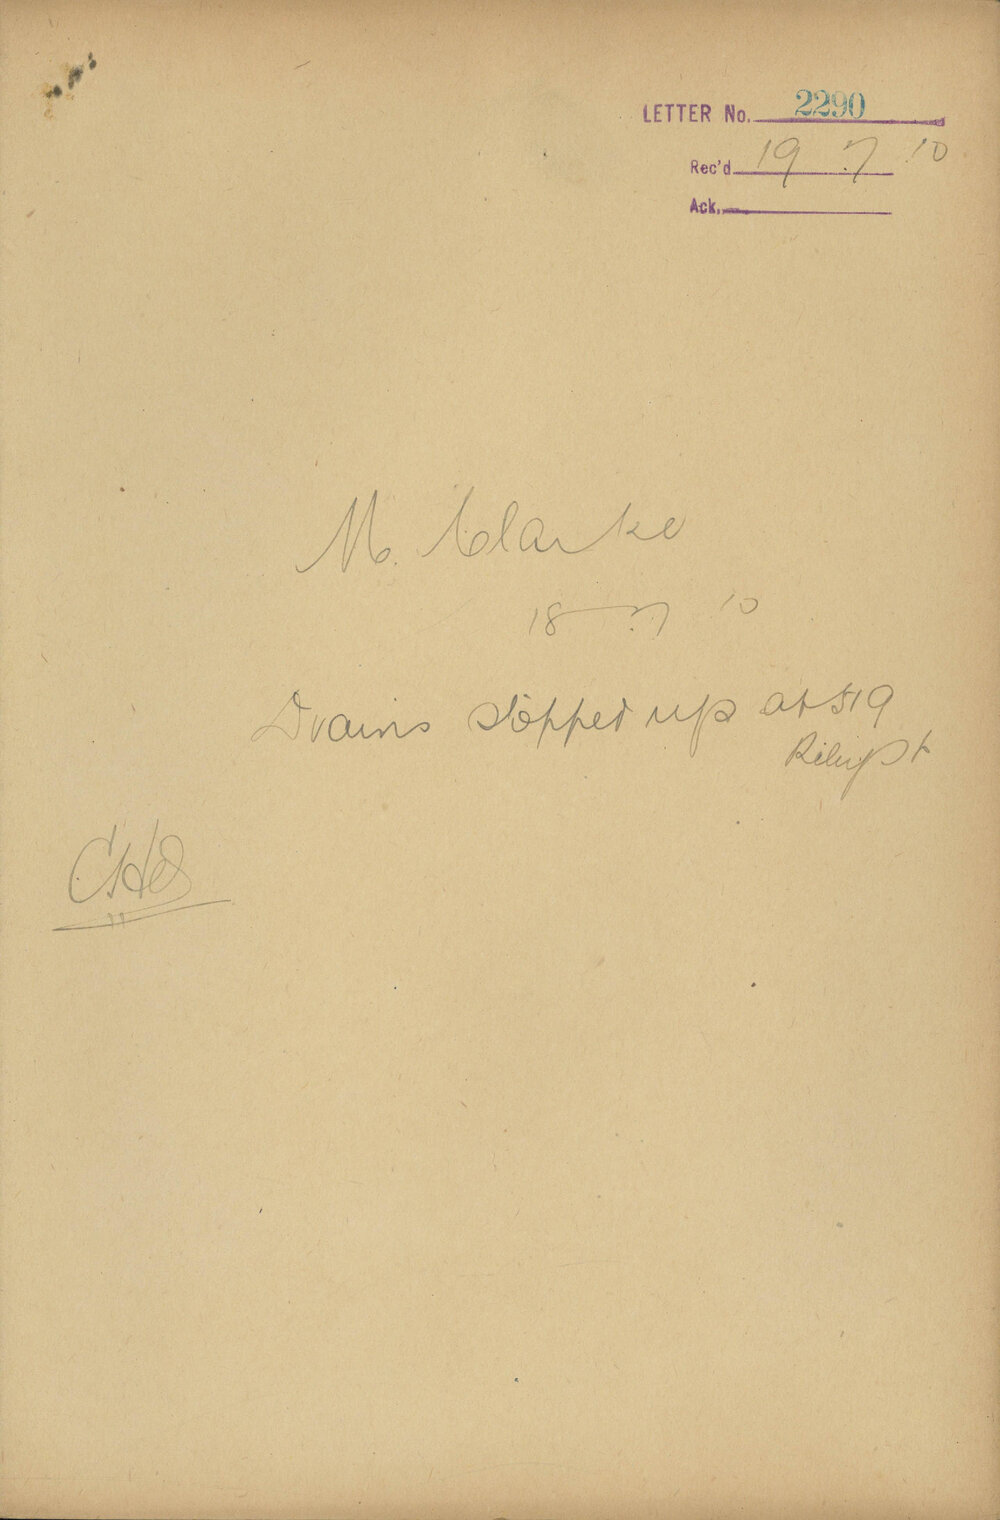 LETTER No. 2290
Rec'd 19 7 10
Ack.
M. Clarke
18 7 10
Drains stopped up at 519
Riley St